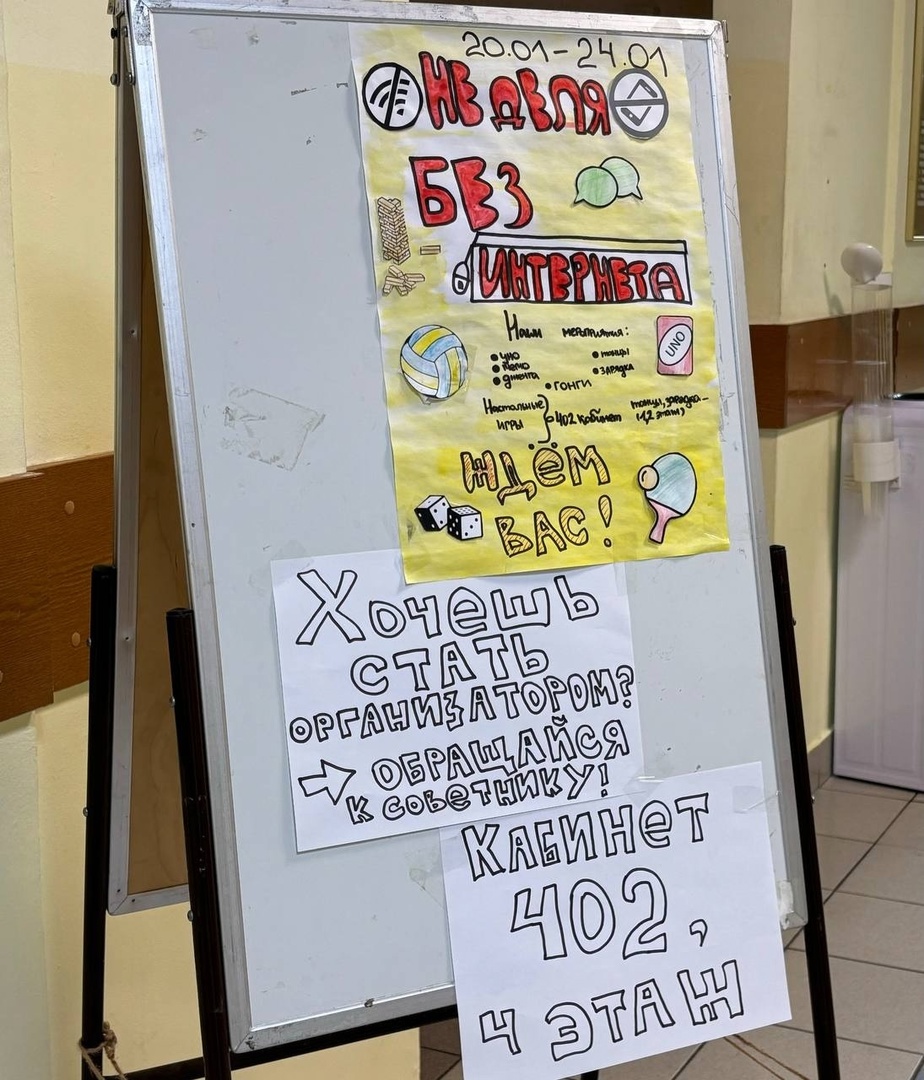 20.01-24.01
НЕДЕЛЯ
БЕЗ
ИНТЕРНЕТА
Наши мероприятия:
• уно
• мемо
• дженга
• танцы
• зарядка
• гонги
UNO
Настольные игры } 402 кабинет
танцы, зарядка-
(1,2 этаж)
ЖДЁМ
ВАС!
Хочешь
СТАТЬ
ОРГАНИЗАТОРОМ?
→ ОБРАЩАЙСЯ
К СОВЕТНИКУ!
КАБИНЕТ
402,
4 ЭТАЖ